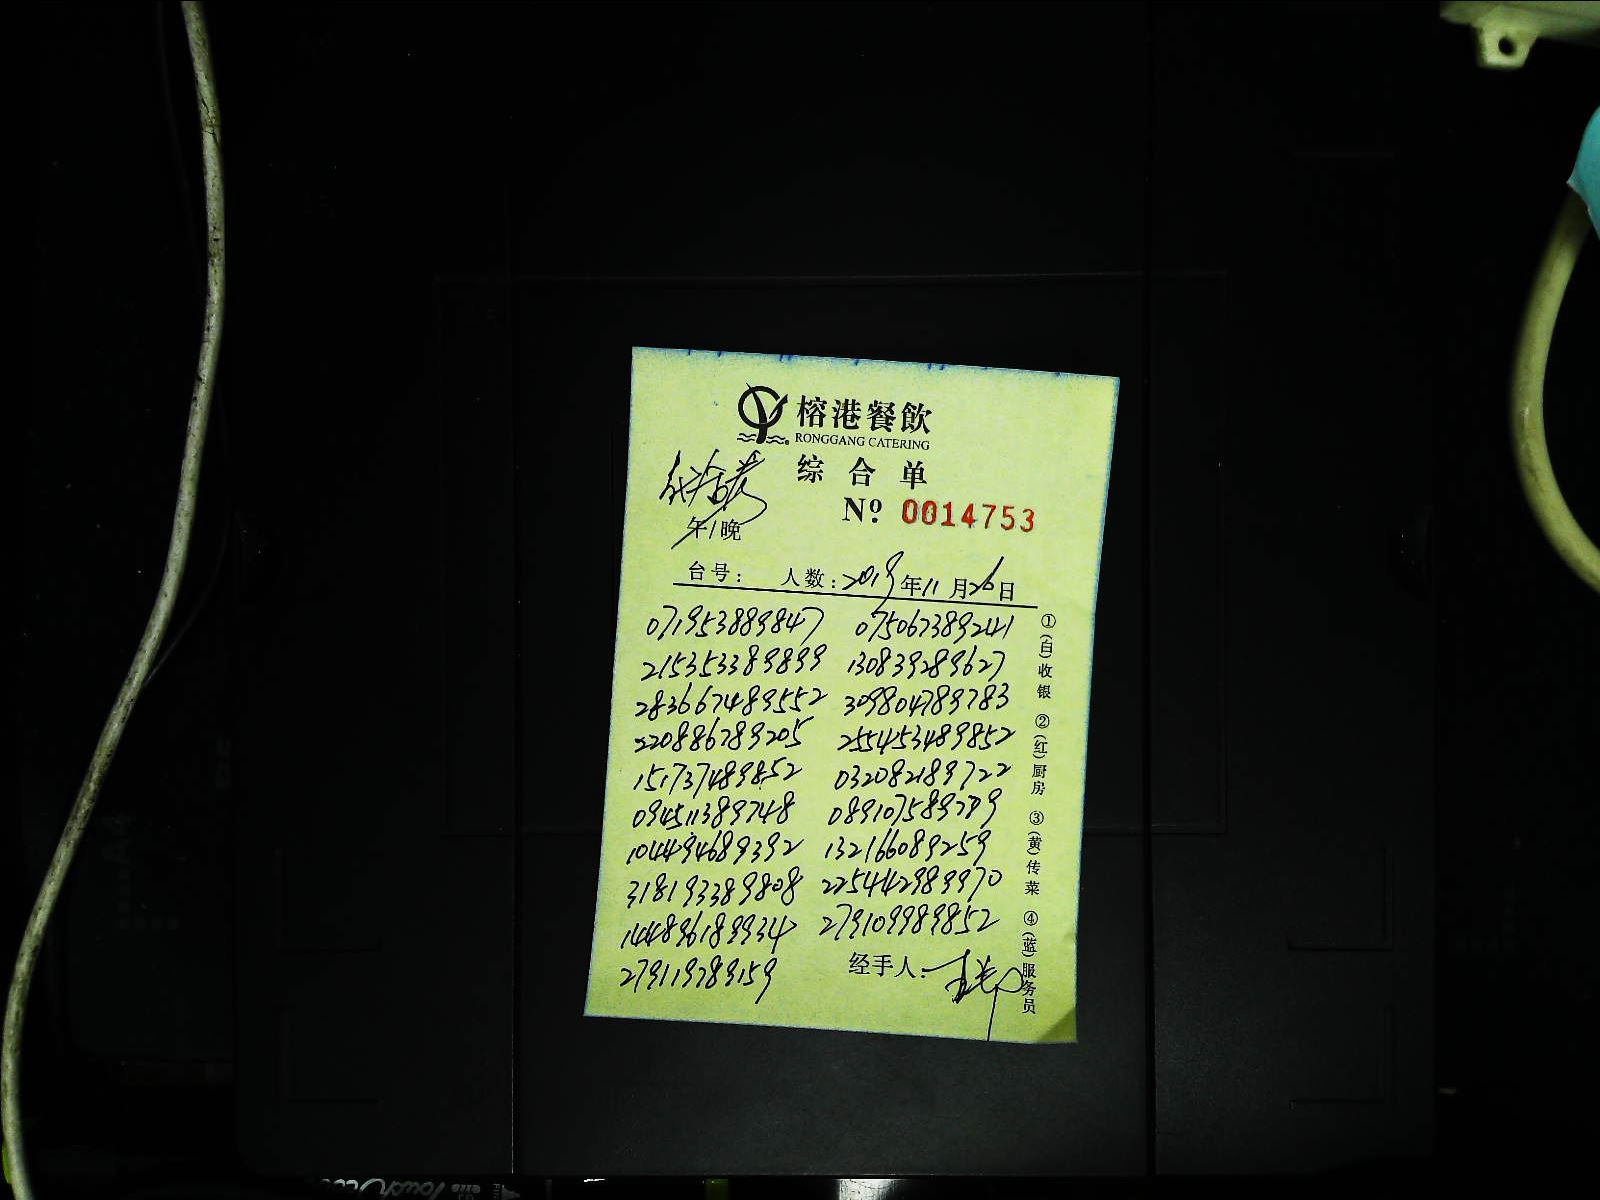 榕港餐飲
RONGGANG CATERING
综合单
Nº 0014753
午/晚
台号: 人数: 2019年11月26日
071953889847 075067389241
215353389899 130839289627
283667489552 309804789783
220886789205 255453489852
151737489852 032082189722
094511389748 089107589789
104494689392 132166089259
318193389808 225442989970
144896189934 279109989852
279119789159
经手人:
①(白)收银 ②(红)厨房 ③(黄)传菜 ④(蓝)服务员